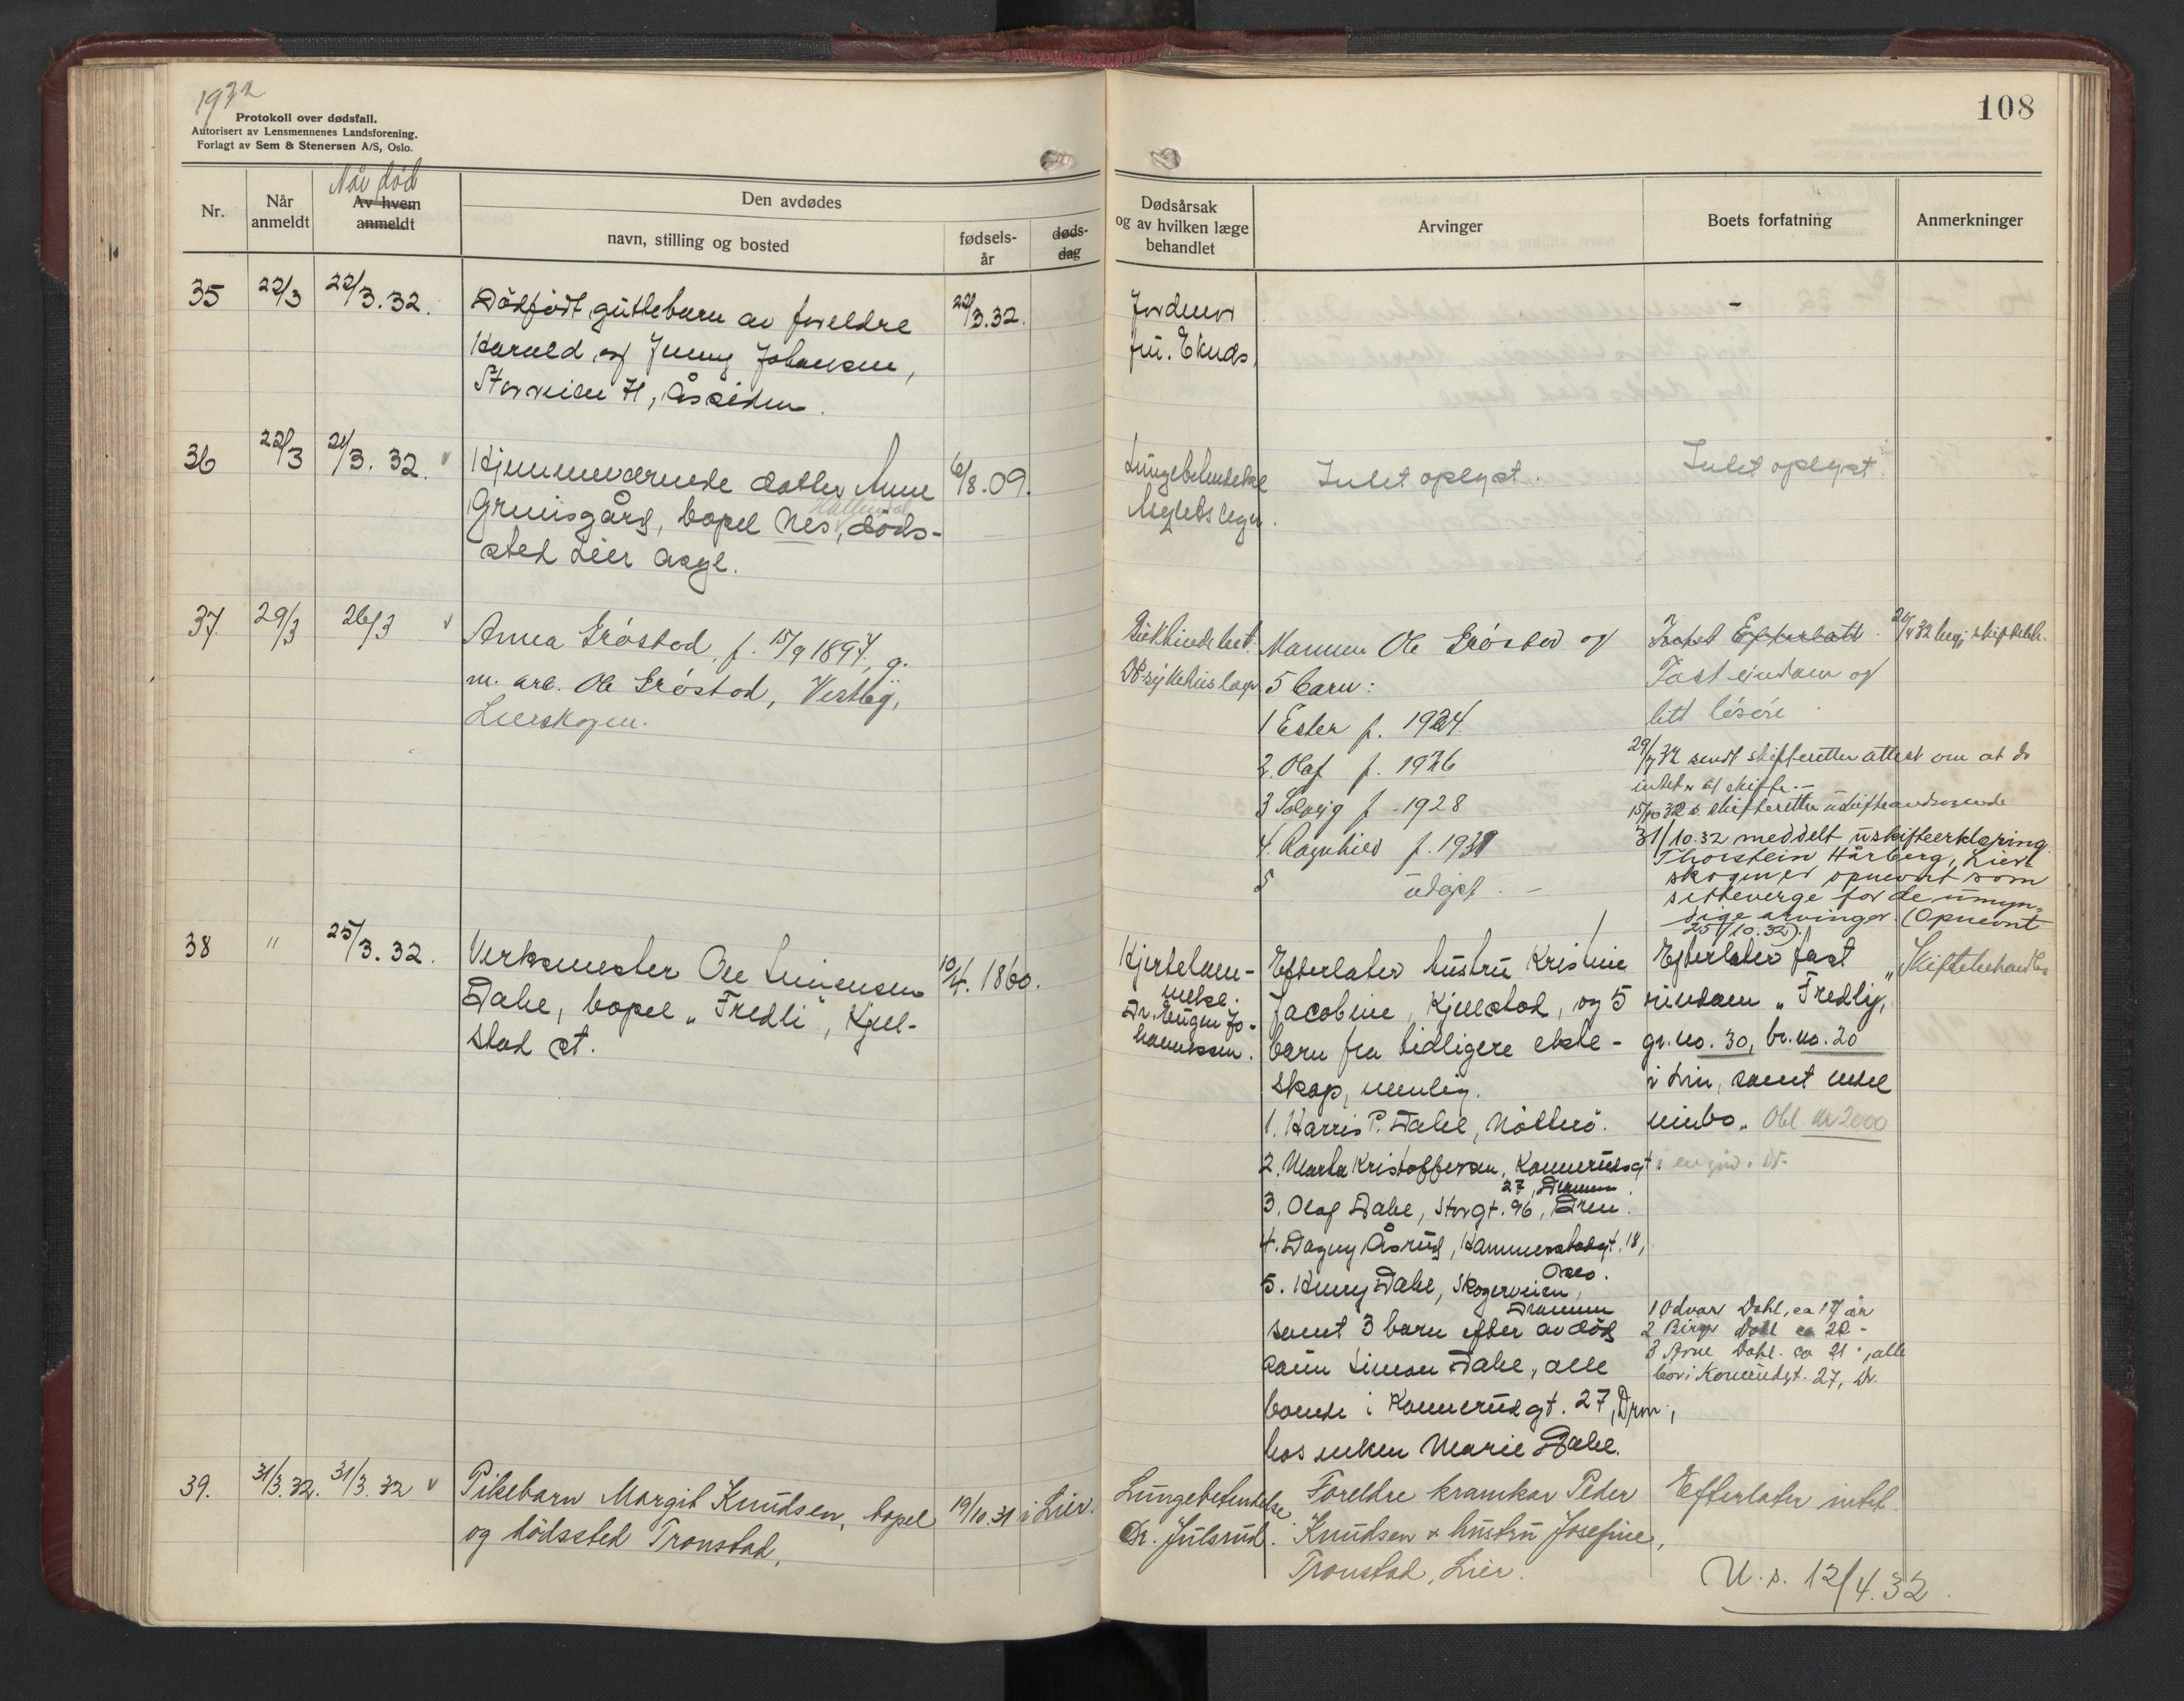 1932
Protokoll over dødsfall.
Autorisert av Lensmennenes Landsforening.
Forlagt av Sem & Stenersen A/S, Oslo.
108
Nr.
Når anmeldt
Når død
Av hvem anmeldt
Den avdødes
navn, stilling og bosted
fødsels-
år
døds-
dag
Dødsårsak
og av hvilken læge
behandlet
Arvinger
Boets forfatning
Anmerkninger
35 22/3 22/3.32. Dødfødt guttebarn av foreldre 22/3.32.
Harald og Jenny Johansen,
Storveien 71, Åssiden.
Jordmor
fru. Ekuds.
-
36 22/3 21/3.32. Hjemmeværende datter Anne 6/8.09.
bopel Nes, døds-
Hallingdal
sted Lier asyl.
Lungebetendelse
Asylets lege.
Intet oplyst.
Intet oplyst.
37 29/3 26/3 Anna Gróstad, f. 15/9 1897, g.
m. arb. Ole Gróstad, Vestby,
Lierskogen.
Dr. sykehus lege.
Mannen Ole Gróstad og
5 barn:
1 Ester f. 1924.
2. Olaf f. 1926
3 Solveig f. 1928
4. Ragnhild f. 1931
5 udøpt. -
Intet Efterlatt.
Fast eiendom og
litt løsøre
29/4 32 sendt skifteretten attest om at
intet er at skifte. -
15/10 32 s. skifteretten uskifteandragende
31/10.32 meddelt uskifteerklæring.
Thorstein Hårberg, Lier-
skogen er opnevnt som
setteverge for de umyn-
dige arvinger. (Opnevnt
25/10.32).
38 " 25/3.32. Verksmester Ole Simensen 10/4.1860.
Dahl, bopel "Fredli", Kjel-
stad st.
Hjertelam-
melse.
Dr. Eugen Jo-
hannessen.
Efterlater hustru Kristine
Jacobine, Kjellstad, og 5
barn fra tidligere ekte-
skap, nemlig.
1. Harris P. Dahl, Nøtterø.
2. Marta Kristoffersen, Konnerudsgt.
27, Drammen.
3. Olaf Dahl, Storgt. 96, Drm.
4. Dagny Åsrud, Hammerstadgt. 18,
Oslo.
5. Henry Dahl, Skogerveien,
Drammen
samt 3 barn efter avdød
sønn Simon Dahl, alle
boende i Konnerudgt. 27, Drm.,
hos enken Marie Dahl.
Efterlater fast
eiendom "Fredly,"
gr.no. 30, br.no. 20
i Lier, samt endel
innbo. Obl. kr 2000
1 Odvar Dahl, ca 17 år
2 Birger Dahl ca 22 -
3 Arne Dahl. ca 21 -, alle
bor i Konnerudgt. 27, Dr.
Skiftebehandles
39. 31/3.32. 31/3.32 Pikebarn Margit Knudsen, bopel 19/10.31 i Lier.
og dødssted Tronstad,
Lungebetendelse
Dr. Julsrud.
Foreldre kramkar Peder
Knudsen & hustru Josefine,
Tronstad, Lier.
Efterlater intet.
U.s. 12/4.32.